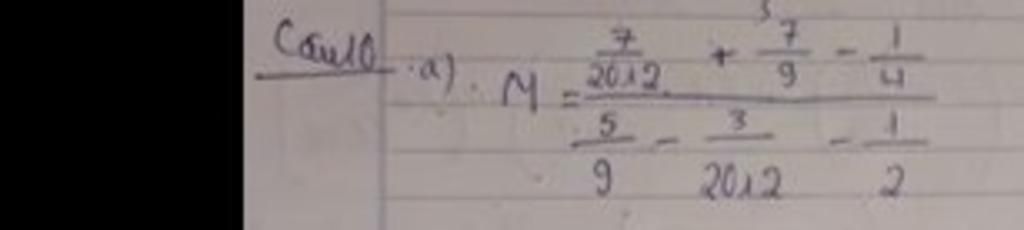 Câu 10 a). M = \frac{\frac{7}{2012} + \frac{7}{9} - \frac{1}{4}}{\frac{5}{9} - \frac{3}{2012} - \frac{1}{2}}